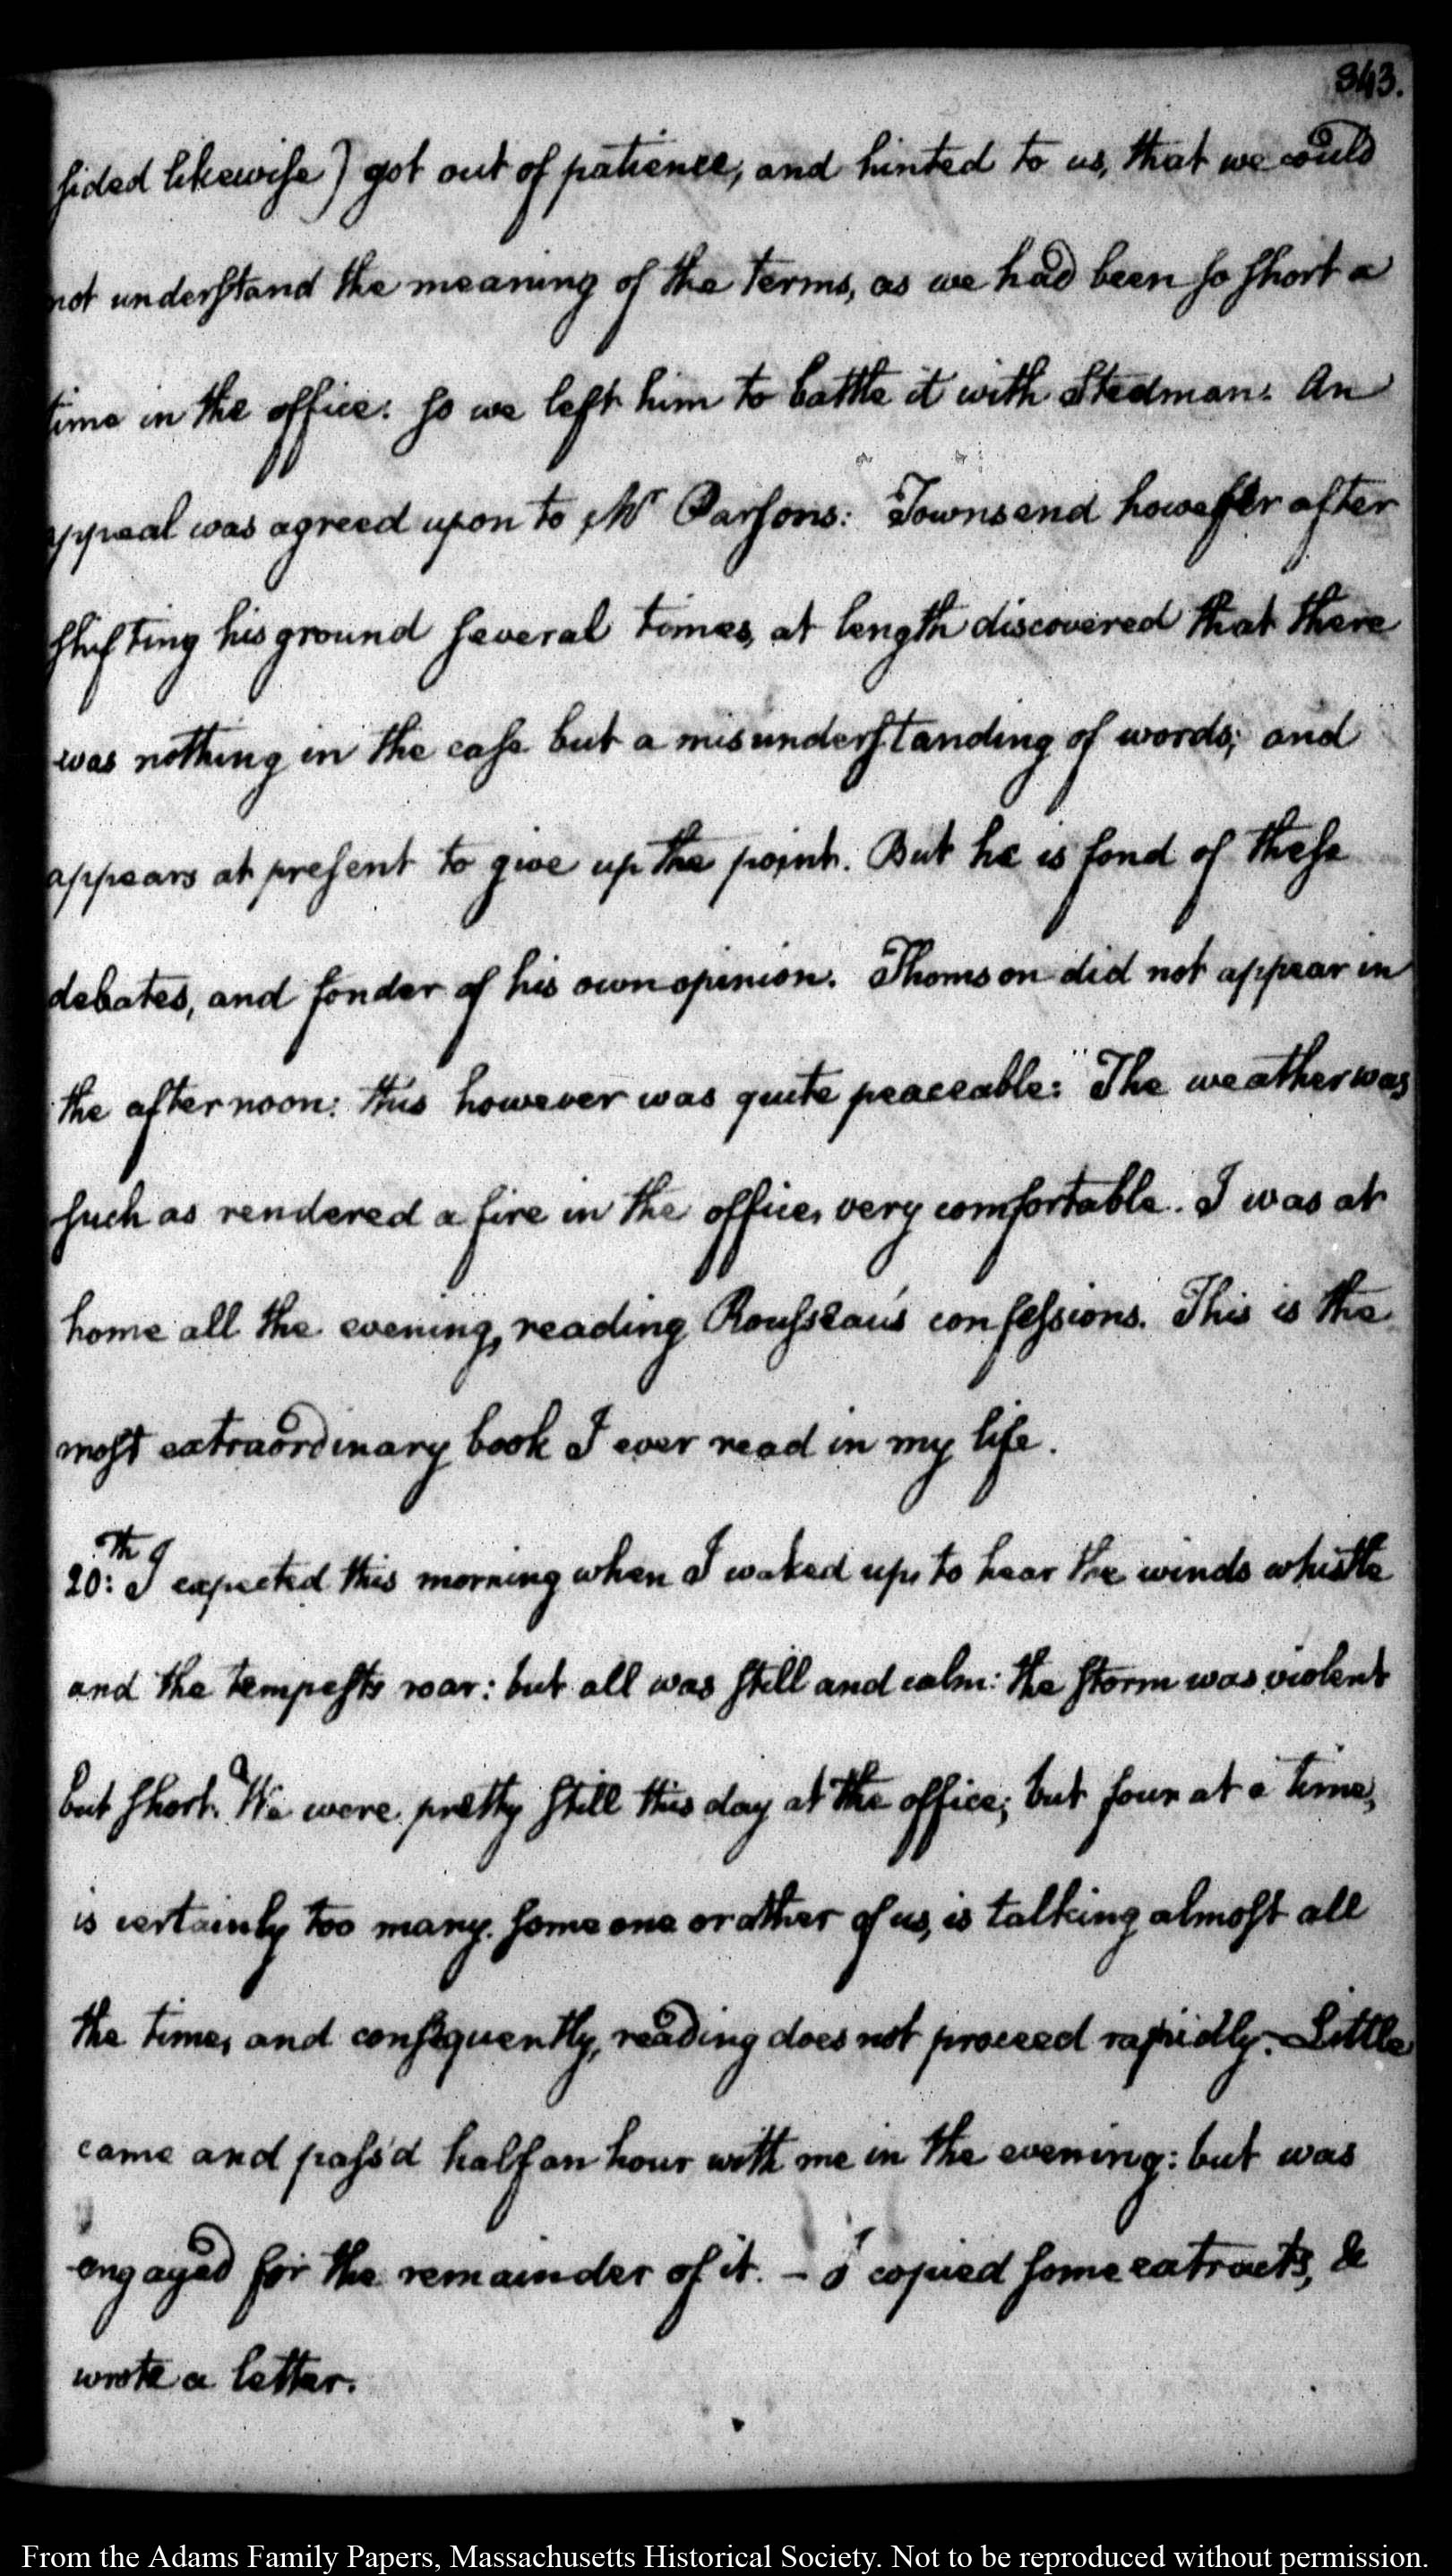 343.
sided likewise) got out of patience, and hinted to us, that we could
not understand the meaning of the terms, as we had been so short a
time in the office: so we left him to battle it with Stedman. An
appeal was agreed upon to Mr Parsons: Townsend however after
shifting his ground several times, at length discovered that there
was nothing in the case but a misunderstanding of words; and
appears at present to give up the point. But he is fond of these
debates, and fonder of his own opinion. Thomson did not appear in
the afternoon: this however was quite peaceable: The weather was
such as rendered a fire in the office, very comfortable. I was at
home all the evening, reading Rousseau's confessions. This is the
most extraordinary book I ever read in my life.
20th: I expected this morning when I waked up, to hear the winds whistle
and the tempests roar: but all was still and calm: the storm was violent
but short. We were pretty still this day at the office; but four at a time,
is certainly too many. some one or other of us, is talking almost all
the time, and consequently, reading does not proceed rapidly. Little
came and pass'd half an hour with me in the evening: but was
engaged for the remainder of it. – I copied some extracts, &
wrote a letter.
From the Adams Family Papers, Massachusetts Historical Society. Not to be reproduced without permission.